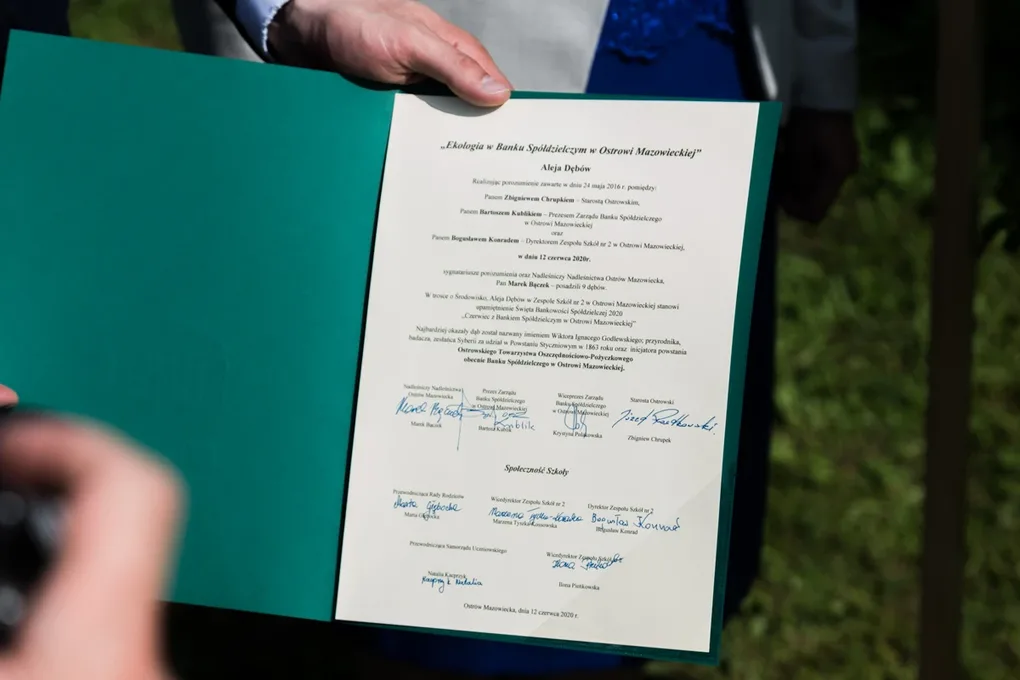 „Ekologia w Banku Spółdzielczym w Ostrowi Mazowieckiej”
Aleja Dębów
Realizując porozumienie zawarte w dniu 24 maja 2016 r. pomiędzy:
Panem Zbigniewem Chrupkiem – Starostą Ostrowskim,
Panem Bartoszem Kublikiem – Prezesem Zarządu Banku Spółdzielczego
w Ostrowi Mazowieckiej
oraz
Panem Bogusławem Konradem – Dyrektorem Zespołu Szkół nr 2 w Ostrowi Mazowieckiej,
w dniu 12 czerwca 2020r.
sygnatariusze porozumienia oraz Nadleśniczy Nadleśnictwa Ostrów Mazowiecka,
Pan Marek Bączek – posadzili 9 dębów.
W trosce o Środowisko, Aleja Dębów w Zespole Szkół nr 2 w Ostrowi Mazowieckiej stanowi
upamiętnienie Święta Bankowości Spółdzielczej 2020
„Czerwiec z Bankiem Spółdzielczym w Ostrowi Mazowieckiej”
Najbardziej okazały dąb został nazwany imieniem Wiktora Ignacego Godlewskiego; przyrodnika,
badacza, zesłańca Syberii za udział w Powstaniu Styczniowym w 1863 roku oraz inicjatora powstania
Ostrowskiego Towarzystwa Oszczędnościowo-Pożyczkowego
obecnie Banku Spółdzielczego w Ostrowi Mazowieckiej.
Nadleśniczy Nadleśnictwa
Ostrów Mazowiecka
Marek Bączek
Prezes Zarządu
Banku Spółdzielczego
w Ostrowi Mazowieckiej
Kublik
Bartosz Kublik
Wiceprezes Zarządu
Banku Spółdzielczego
w Ostrowi Mazowieckiej
Krystyna
Starosta Ostrowski
Zbigniew Chrupek
Społeczność Szkoły
Przewodnicząca Rady Rodziców
Marta
Marta
Wicedyrektor Zespołu Szkół nr 2
Marzena
Marzena Tyszka
Dyrektor Zespołu Szkół nr 2
Bogusław Konrad
Bogusław Konrad
Przewodnicząca Samorządu Uczniowskiego
Natalia Kacprzyk
Kacprzyk Natalia
Wicedyrektor Zespołu Szkół
Ilona
Ilona Pieńkowska
Ostrów Mazowiecka, dnia 12 czerwca 2020 r.